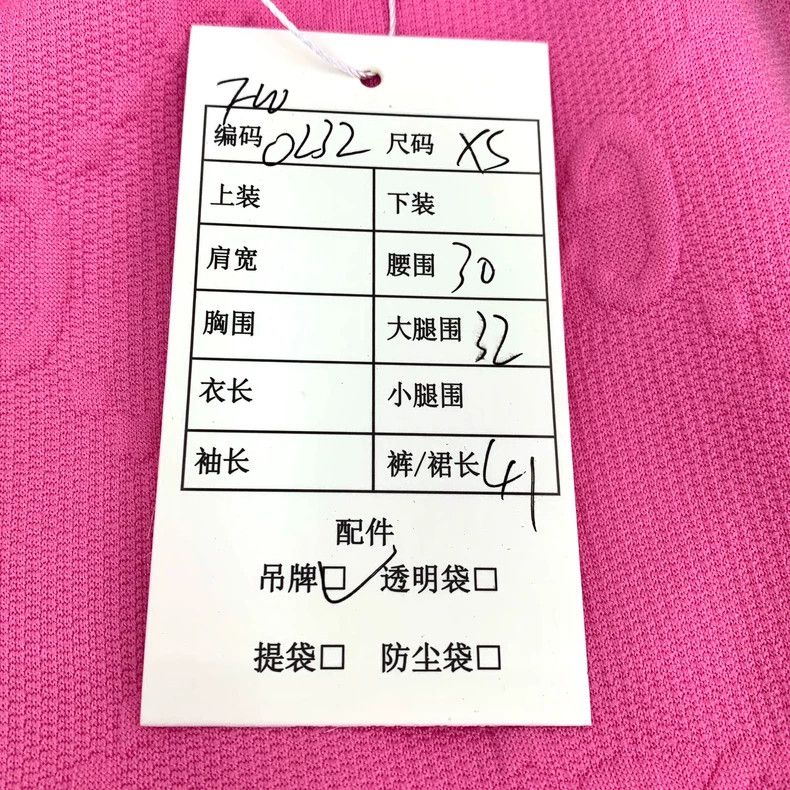 FW
编码 0232 尺码 XS
上装 下装
肩宽 腰围 30
胸围 大腿围 32
衣长 小腿围
袖长 裤/裙长 41
配件
吊牌□✓ 透明袋□
提袋□ 防尘袋□